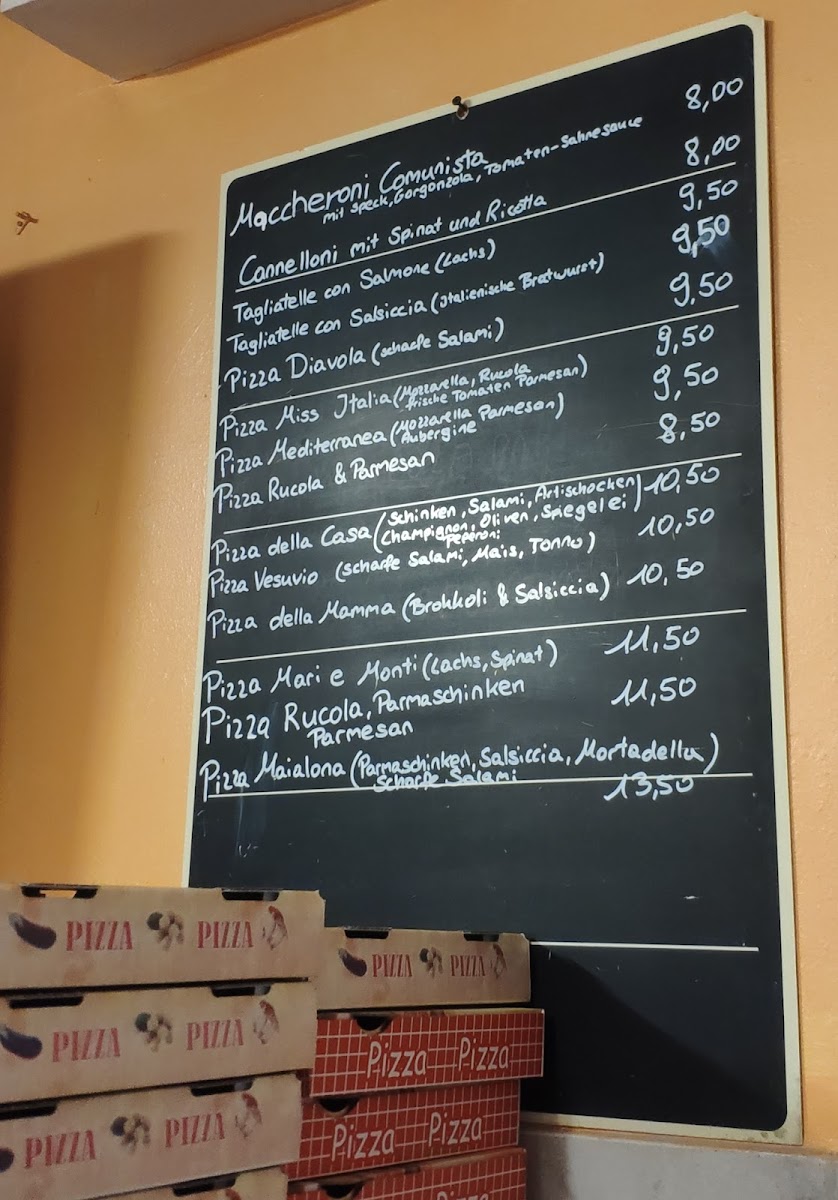 Maccheroni Comunista 8,00
mit Speck, Gorgonzola, Tomaten-Sahnesauce
Cannelloni mit Spinat und Ricotta 8,00
Tagliatelle con Salmone (Lachs) 9,50
Tagliatelle con Salsiccia (italienische Bratwurst) 9,50
Pizza Diavola (scharfe Salami) 9,50
Pizza Miss Italia (Mozzarella, Rucola 9,50
frische Tomaten Parmesan)
Pizza Mediterranea (Mozzarella Parmesan) 9,50
Aubergine
Pizza Rucola & Parmesan 8,50
Pizza della Casa (Schinken, Salami, Artischocken 10,50
Champignon, Oliven, Spiegelei)
Peperoni
Pizza Vesuvio (scharfe Salami, Mais, Tonno) 10,50
Pizza della Mamma (Brokkoli & Salsiccia) 10,50
Pizza Mari e Monti (Lachs, Spinat) 11,50
Pizza Rucola, Parmaschinken 11,50
Parmesan
Pizza Maialona (Parmaschinken, Salsiccia, Mortadella)
Scharfe Salami 13,50
PIZZA PIZZA
PIZZA PIZZA
PIZZA PIZZA
PIZZA PIZZA
Pizza Pizza
Pizza Pizza
Pizza Pizza